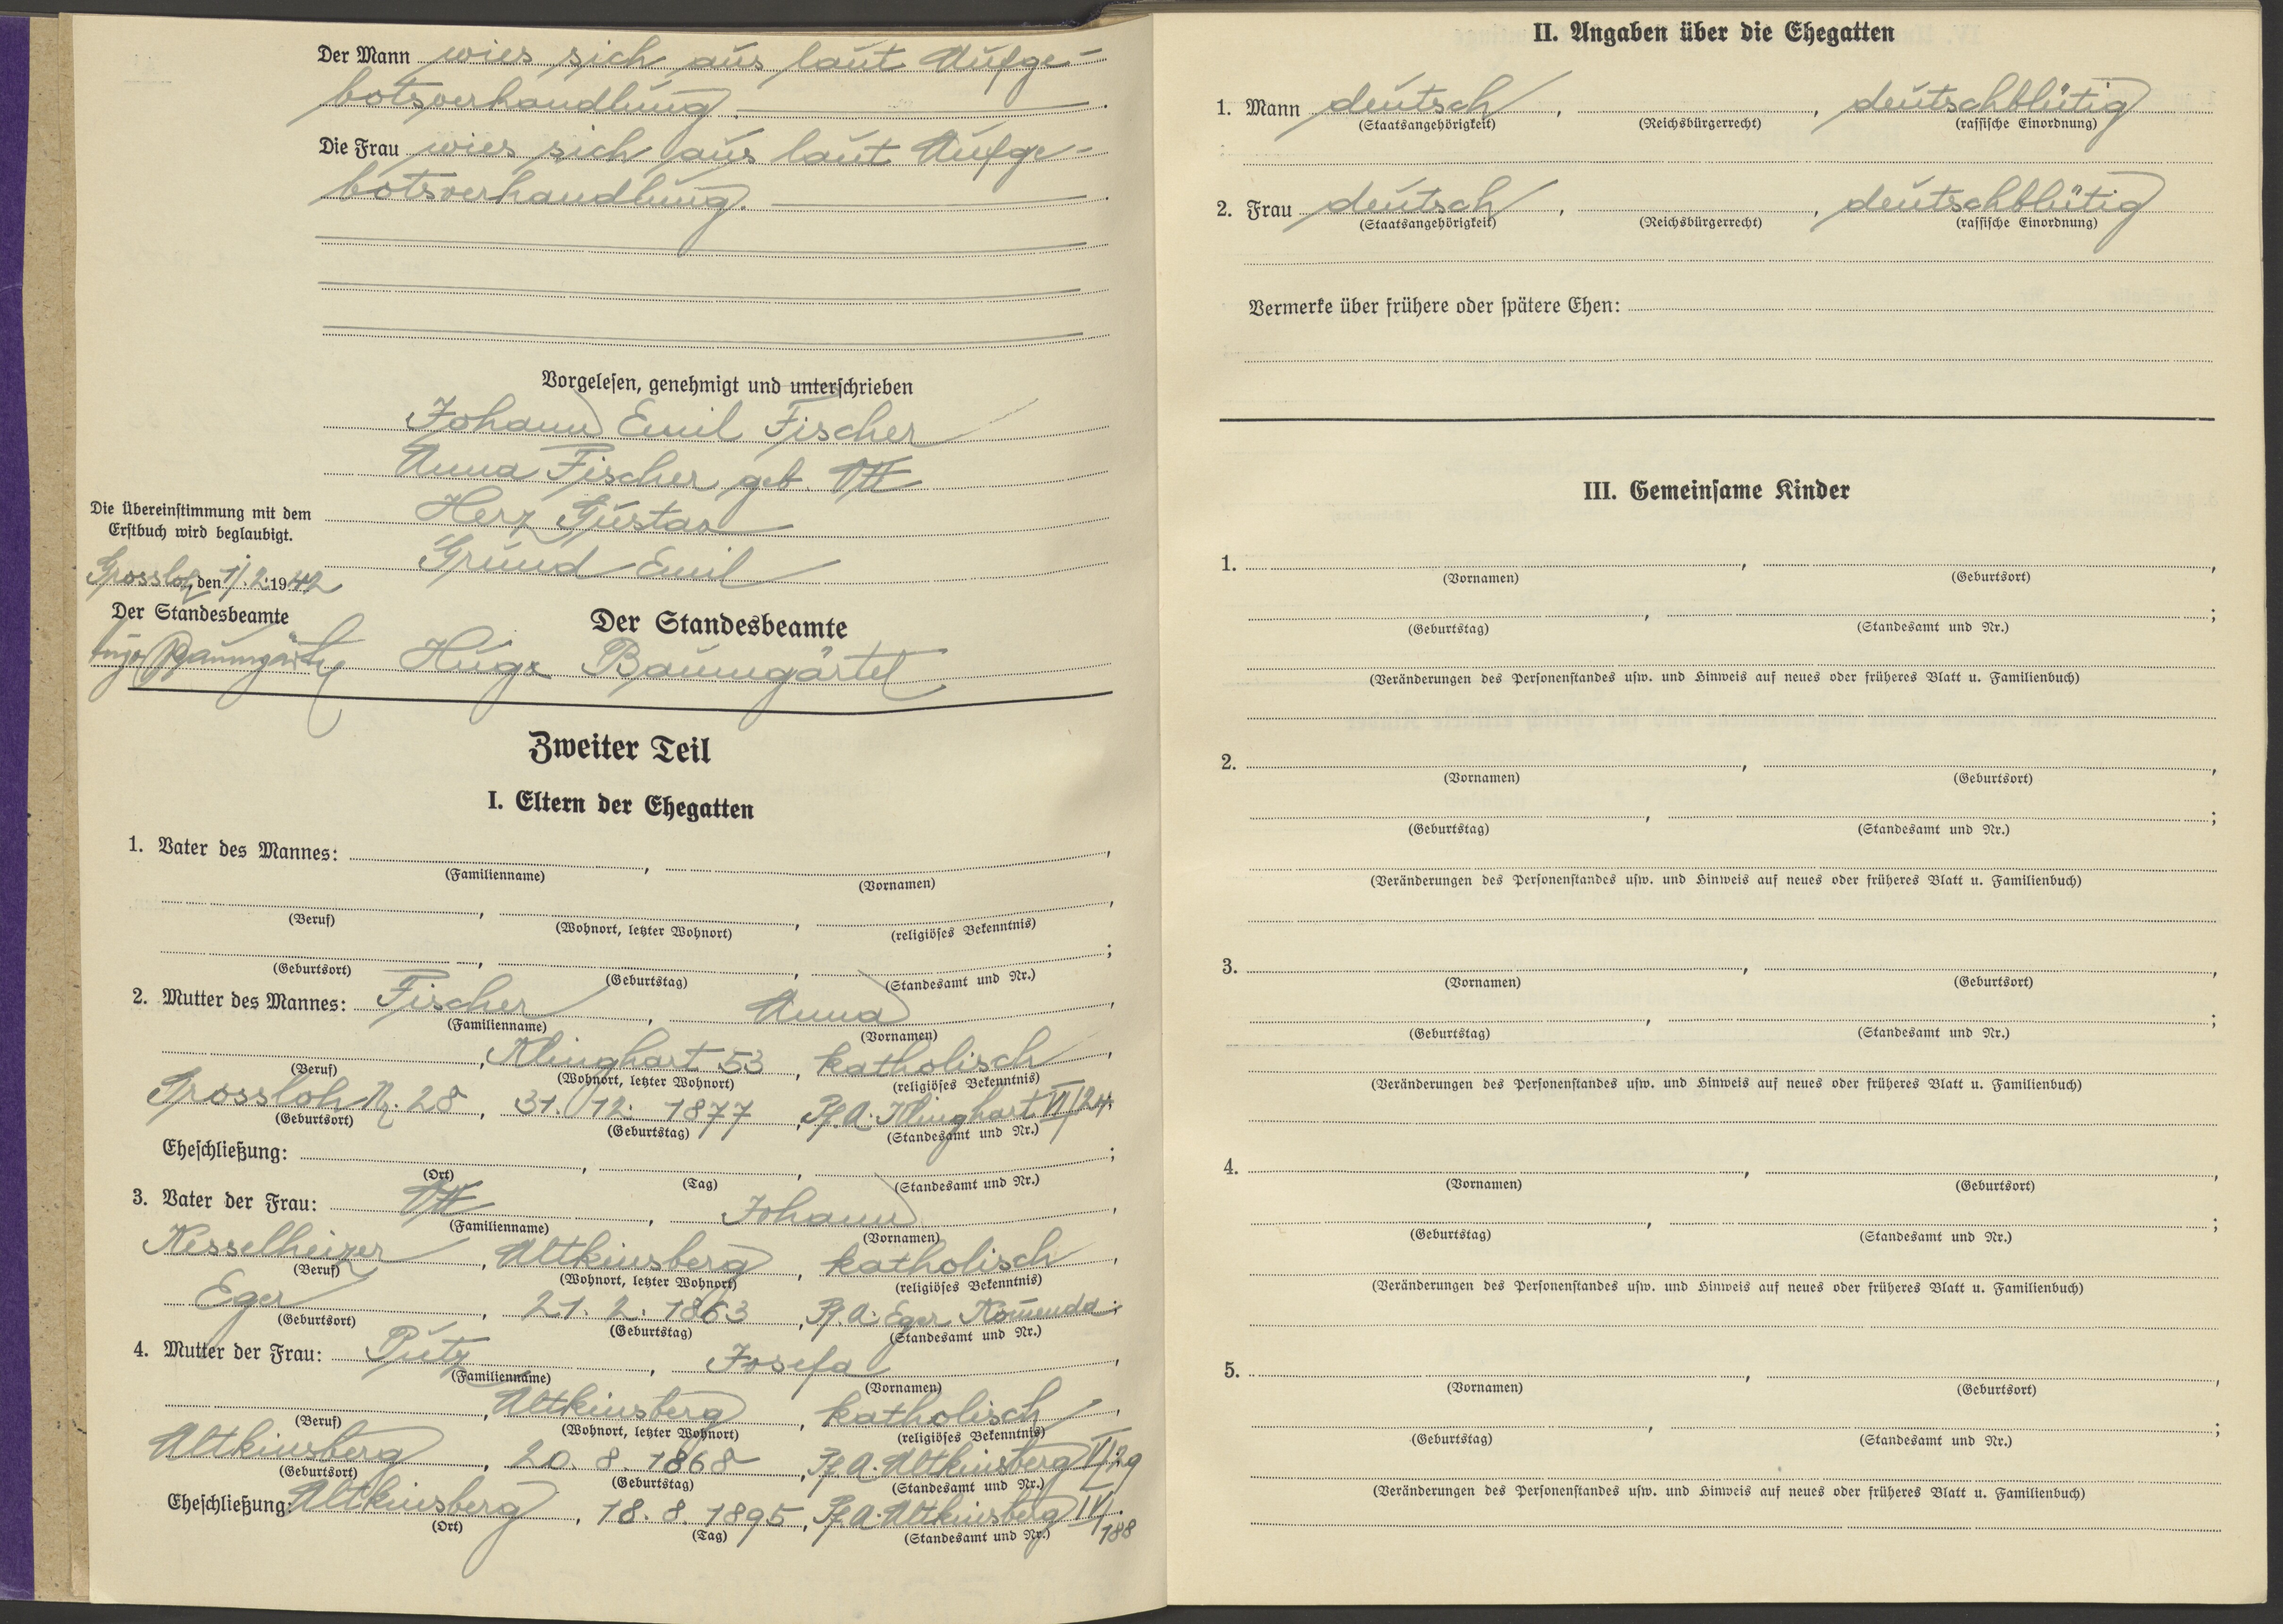 Der Mann wies sich aus laut Aufge-
botsverhandlung.
Die Frau wies sich aus laut Aufge-
botsverhandlung.
Vorgelesen, genehmigt und unterschrieben
Johann Emil Fischer
Anna Fischer geb. Ott
Herz Gustav
Grund Emil
Die Übereinstimmung mit dem
Erstbuch wird beglaubigt.
Grossloh, den 1.2.1942
Der Standesbeamte
Hugo Baumgärtel
Der Standesbeamte
Hugo Baumgärtel
Zweiter Teil
I. Eltern der Ehegatten
1. Vater des Mannes: , ,
(Familienname) (Vornamen)
, , ,
(Beruf) (Wohnort, letzter Wohnort) (religiöses Bekenntnis)
, , ;
(Geburtsort) (Geburtstag) (Standesamt und Nr.)
2. Mutter des Mannes: Fischer , Anna ,
(Familienname) (Vornamen)
, Klinghart 53 , katholisch ,
(Beruf) (Wohnort, letzter Wohnort) (religiöses Bekenntnis)
Grossloh Nr. 28 , 31. 12. 1877 , Pf. A. Klinghart VI/24.
(Geburtsort) (Geburtstag) (Standesamt und Nr.)
Eheschließung: , , ;
(Ort) (Tag) (Standesamt und Nr.)
3. Vater der Frau: Ott , Johann ,
(Familienname) (Vornamen)
Kesselheizer , Altkinsberg , katholisch ,
(Beruf) (Wohnort, letzter Wohnort) (religiöses Bekenntnis)
Eger , 21. 2. 1863 , Pf. A. Eger Komenda ;
(Geburtsort) (Geburtstag) (Standesamt und Nr.)
4. Mutter der Frau: Putz , Josefa ,
(Familienname) (Vornamen)
, Altkinsberg , katholisch ,
(Beruf) (Wohnort, letzter Wohnort) (religiöses Bekenntnis)
Altkinsberg , 20. 8. 1868 , Pf. A. Altkinsberg VI/29
(Geburtsort) (Geburtstag) (Standesamt und Nr.)
Eheschließung: Altkinsberg , 18. 8. 1895 , Pf. A. Altkinsberg IV/
188
(Ort) (Tag) (Standesamt und Nr.)
II. Angaben über die Ehegatten
1. Mann deutsch , , deutschblütig
(Staatsangehörigkeit) (Reichsbürgerrecht) (rassische Einordnung)
2. Frau deutsch , , deutschblütig
(Staatsangehörigkeit) (Reichsbürgerrecht) (rassische Einordnung)
Vermerke über frühere oder spätere Ehen:
III. Gemeinsame Kinder
1. , ,
(Vornamen) (Geburtsort)
, ;
(Geburtstag) (Standesamt und Nr.)
(Veränderungen des Personenstandes usw. und Hinweis auf neues oder früheres Blatt u. Familienbuch)
2. , ,
(Vornamen) (Geburtsort)
, ;
(Geburtstag) (Standesamt und Nr.)
(Veränderungen des Personenstandes usw. und Hinweis auf neues oder früheres Blatt u. Familienbuch)
3. , ,
(Vornamen) (Geburtsort)
, ;
(Geburtstag) (Standesamt und Nr.)
(Veränderungen des Personenstandes usw. und Hinweis auf neues oder früheres Blatt u. Familienbuch)
4. , ,
(Vornamen) (Geburtsort)
, ;
(Geburtstag) (Standesamt und Nr.)
(Veränderungen des Personenstandes usw. und Hinweis auf neues oder früheres Blatt u. Familienbuch)
5. , ,
(Vornamen) (Geburtsort)
, ;
(Geburtstag) (Standesamt und Nr.)
(Veränderungen des Personenstandes usw. und Hinweis auf neues oder früheres Blatt u. Familienbuch)